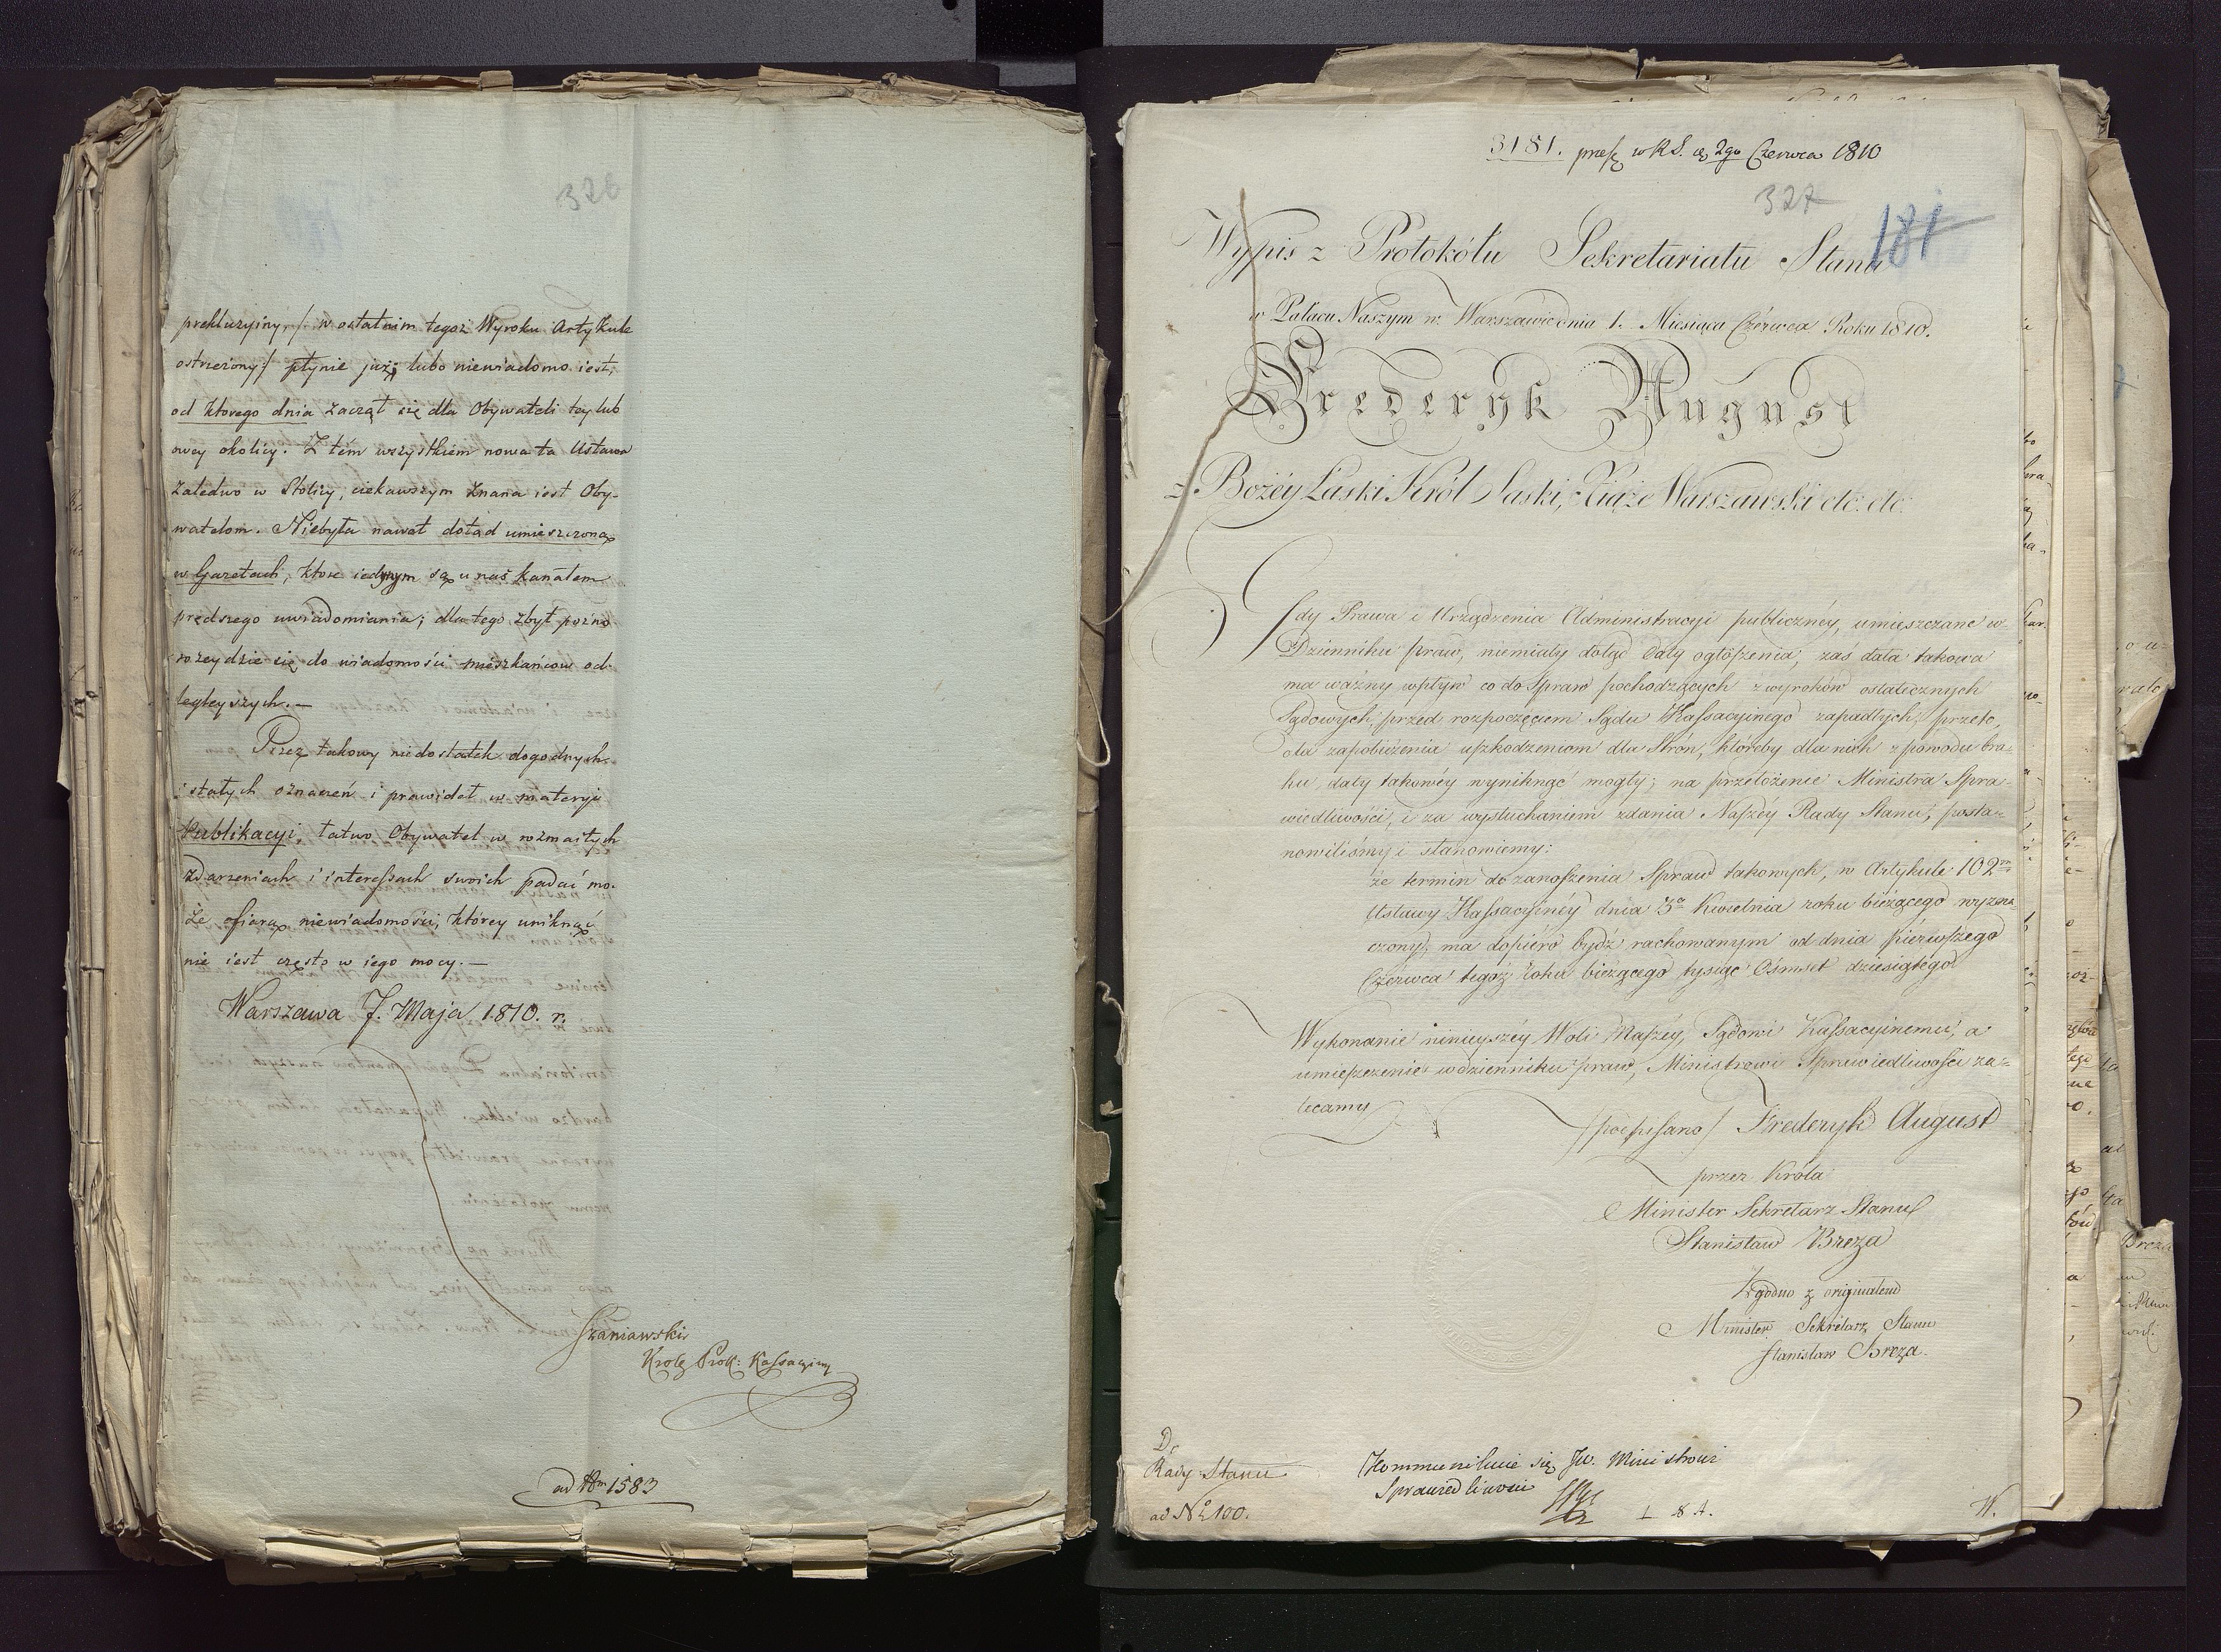 326
prekluzyiny, /: w ostatnim tegoż Wyroku Artykule
ostrzeżony:/ płynie już; lubo niewiadomo iest,
od którego dnia zaczął się dla Obywateli tey lub
owey okolicy. Z tém wszystkiem nowa ta Ustawa
zaledwo w Stolicy, ciekawszym znana iest Oby-
watelom. Niebyła nawet dotąd umieszczoną
w Gazetach, które iedynym są u nas kanałem
prędszego uwiadomiania; dla tego zbyt pózno
rozeydzie się do wiadomości mieszkańców od-
legleyszych. —
Przez takowy niedostatek dogodnych
i stałych oznaczeń i prawideł w materyi
Publikacyi, łatwo Obywatel w rozmaitych
zdarzeniach i interessach swoich padać mo-
że ofiarą niewiadomości, którey uniknąć
nie iest często w iego mocy. —
Warszawa 7. Maja 1810. r.
Szaniawski
Krolę Prok: Kassacyiny
ad Nrm 1583
3181. presę w R S. d. 2go Czerwca 1810
327
181
Wypis z Protokółu Sekretariatu Stanu
w Pałacu Naszym w Warszawie dnia 1. Miesiąca Czérwca Roku 1810.
Fryderyk August
z Bożéy Łaski Król Saski, Xiąże Warszawski etc: etc:
Gdy Prawa i Urządzenia Administracyi publicznéy, umieszczane w
Dzienniku praw, niemiały dotąd Daty ogłoszenia, zaś data takowa
ma ważny wpływ co do Spraw pochodzących z wyroków ostatecznych
Sądowych, przed rozpoczęciem Sądu Kassacyinego zapadłych, przeto,
dla zapobieżenia uszkodzeniom dla Strón, któreby dla nich z powodu bra-
ku daty takowéy wyniknąć mogły; na przełożenie Ministra Spra-
wiedliwości, i za wysłuchaniem zdania Naszéy Rady Stanu, posta-
nowiliśmy i stanowiemy:
że termin do zanoszenia Spraw takowych, w Artykule 102m
Ustawy Kassacyinéy dnia 3o Kwietnia roku bieżącego wyzna-
czony, ma dopiéro bydź rachowanym od dnia pierwszego
Czérwca tegóż roku bieżącego tysiąc Ośmset dziesiątego
Wykonanie ninieyszéy Woli Naszéy, Sądowi Kassacyinemu, a
umieszczenie w dzienniku praw, Ministrowi Sprawiedliwości za-
lecamy
/podpisano/ Frederyk August
przez Króla
Minister Sekretarz Stanu
Stanisław Breza
Zgodno z originałem
Minister Sekretarz Stanu
Stanisław Breza.
D.
Rady Stanu
ad No 100.
Kommunikuie się JW. Ministrowi
Sprawiedliwości
W.